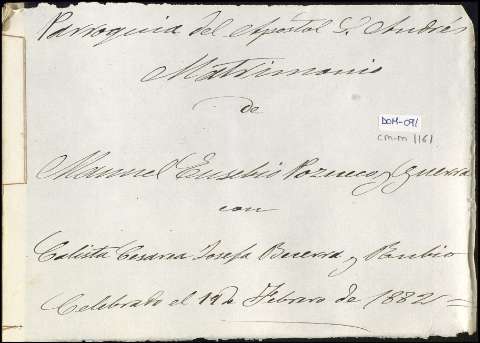 Parroquia del Apostol S. Andrés
Matrimonio
de
DOM-091
cm-m 1161
Manuel Eusebio Pozueco y Guerra
con
Calista Cesarea Josefa Becerra y Rubio
Celebrado el 19 de Febrero de 1882